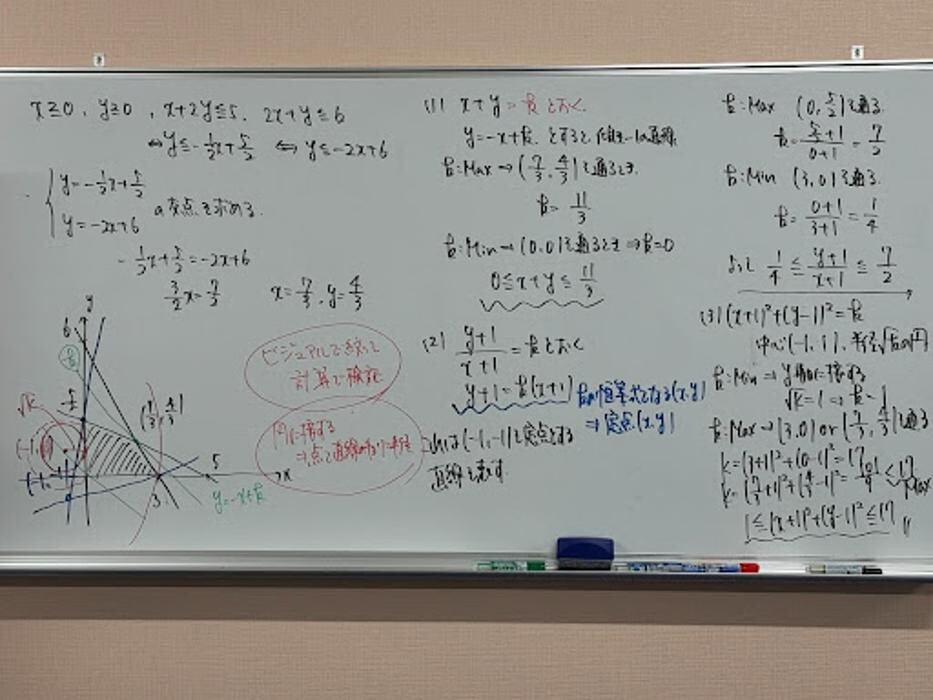 x≧0, y≧0, x+2y≦5, 2x+y≦6
⇔y≦-1/2x+5/2 ⇔ y≦-2x+6
{ y=-1/2x+5/2
y=-2x+6 の交点を求める.
-1/2x+5/2=-2x+6
3/2x=7/2 x=7/3, y=4/3
y
6
5/2
√k
(7/3, 4/3)
(-1,1)
(-1,-1)
3
5
x
y=-x+k
ビジュアルで絞って
計算で検証
円に接する
⇒点と直線のキョリ=半径
(1) x+y=kとおく
y=-x+k とすると 傾き-1の直線
k:Max→(7/3, 4/3)を通るとき.
k=11/3
k:Min→(0,0)を通るとき⇒k=0
0≦x+y≦11/3
(2) y+1/x+1=kとおく
y+1=k(x+1)
kの恒等式となる(x,y)
⇒定点(x,y)
これは(-1,-1)を定点とする
直線を表す.
k:Max (0, 5/2)を通る.
k=5/2+1/0+1=7/2
k:Min (3,0)を通る.
k=0+1/3+1=1/4
よって 1/4≦y+1/x+1≦7/2
(3) (x+1)²+(y-1)²=k
中心(-1,1), 半径√kの円
k:Min⇒y軸に接する
√k=1→k=1
k:Max→(3,0) or (7/3, 4/3)を通る
k=(3+1)²+(0-1)²=17
k=(7/3+1)²+(4/3-1)²=101/9<17
Max
1≦(x+1)²+(y-1)²≦17